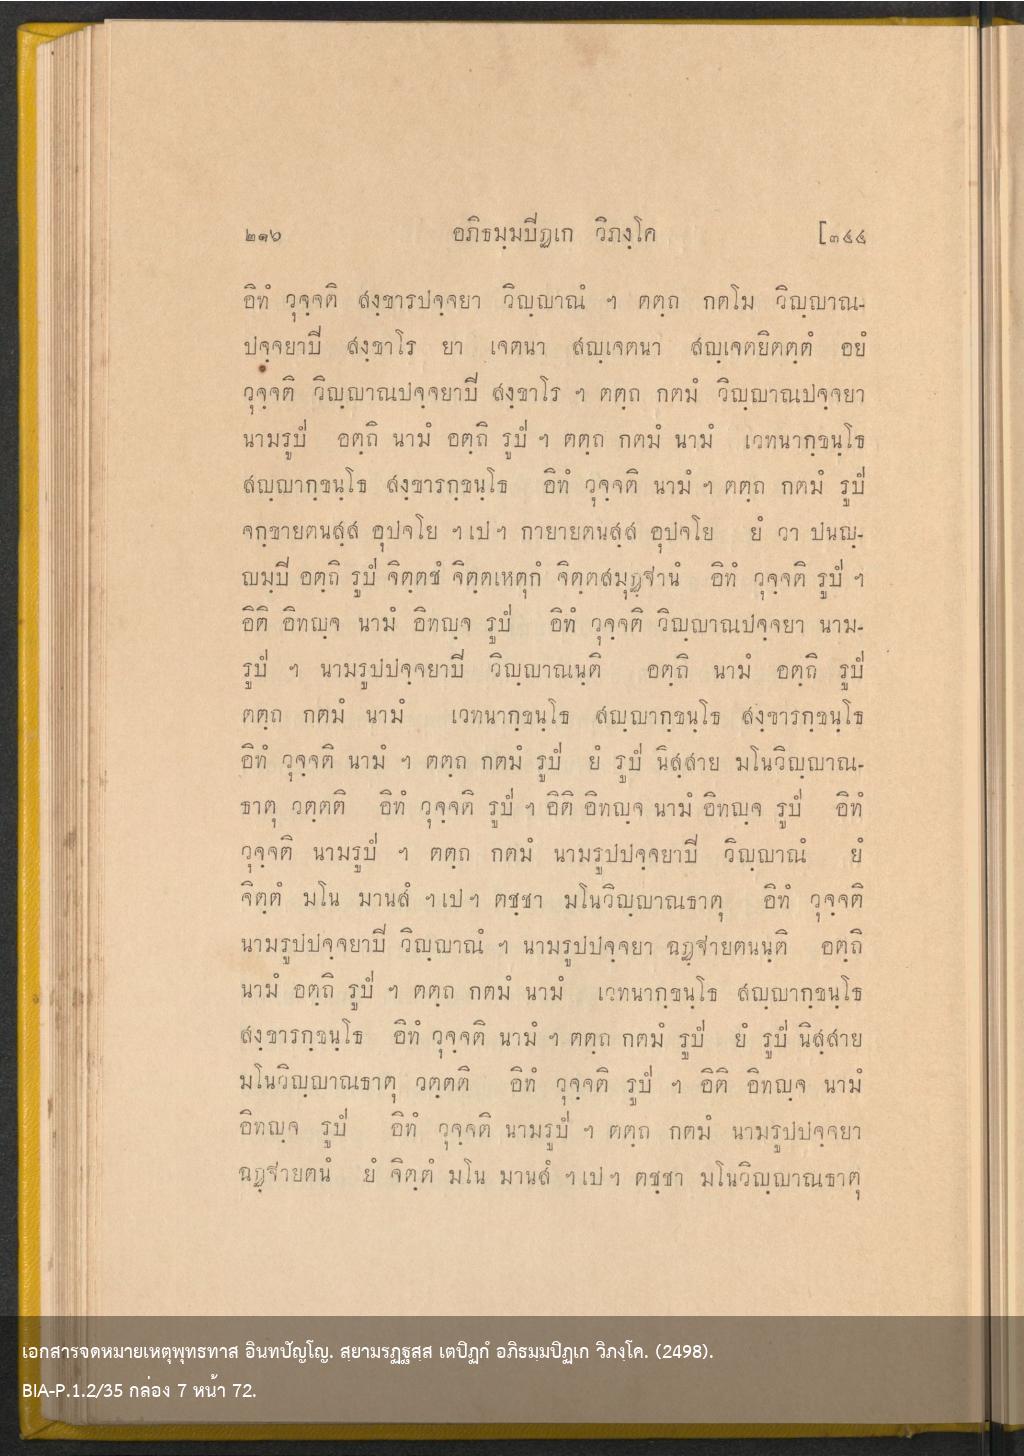 ๒๑๖ อภิธมฺมปิฏเก วิภงฺโค [๓๔๔
อิทํ วุจฺจติ สงฺขารปจฺจยา วิญฺญาณํ ฯ ตตฺถ กตโม วิญฺญาณ-
ปจฺจยาปิ สงฺขาโร ยา เจตนา สญฺเจตนา สญฺเจตยิตตฺตํ อยํ
วุจฺจติ วิญฺญาณปจฺจยาปิ สงฺขาโร ฯ ตตฺถ กตมํ วิญฺญาณปจฺจยา
นามรูปํ อตฺถิ นามํ อตฺถิ รูปํ ฯ ตตฺถ กตมํ นามํ เวทนากฺขนฺโธ
สญฺญากฺขนฺโธ สงฺขารกฺขนฺโธ อิทํ วุจฺจติ นามํ ฯ ตตฺถ กตมํ รูปํ
จกฺขายตนสฺส อุปจโย ฯเปฯ กายายตนสฺส อุปจโย ยํ วา ปนญฺ-
ญมฺปิ อตฺถิ รูปํ จิตฺตชํ จิตฺตเหตุกํ จิตฺตสมุฏฺฐานํ อิทํ วุจฺจติ รูปํ ฯ
อิติ อิทญฺจ นามํ อิทญฺจ รูปํ อิทํ วุจฺจติ วิญฺญาณปจฺจยา นาม-
รูปํ ฯ นามรูปปจฺจยาปิ วิญฺญาณนฺติ อตฺถิ นามํ อตฺถิ รูปํ
ตตฺถ กตมํ นามํ เวทนากฺขนฺโธ สญฺญากฺขนฺโธ สงฺขารกฺขนฺโธ
อิทํ วุจฺจติ นามํ ฯ ตตฺถ กตมํ รูปํ ยํ รูปํ นิสฺสาย มโนวิญฺญาณ-
ธาตุ วตฺตติ อิทํ วุจฺจติ รูปํ ฯ อิติ อิทญฺจ นามํ อิทญฺจ รูปํ อิทํ
วุจฺจติ นามรูปํ ฯ ตตฺถ กตมํ นามรูปปจฺจยาปิ วิญฺญาณํ ยํ
จิตฺตํ มโน มานสํ ฯเปฯ ตชฺชา มโนวิญฺญาณธาตุ อิทํ วุจฺจติ
นามรูปปจฺจยาปิ วิญฺญาณํ ฯ นามรูปปจฺจยา ฉฏฺฐายตนนฺติ อตฺถิ
นามํ อตฺถิ รูปํ ฯ ตตฺถ กตมํ นามํ เวทนากฺขนฺโธ สญฺญากฺขนฺโธ
สงฺขารกฺขนฺโธ อิทํ วุจฺจติ นามํ ฯ ตตฺถ กตมํ รูปํ ยํ รูปํ นิสฺสาย
มโนวิญฺญาณธาตุ วตฺตติ อิทํ วุจฺจติ รูปํ ฯ อิติ อิทญฺจ นามํ
อิทญฺจ รูปํ อิทํ วุจฺจติ นามรูปํ ฯ ตตฺถ กตมํ นามรูปปจฺจยา
ฉฏฺฐายตนํ ยํ จิตฺตํ มโน มานสํ ฯเปฯ ตชฺชา มโนวิญฺญาณธาตุ
เอกสารจดหมายเหตุพุทธทาส อินทปัญโญ. สฺยามรฏฺฐสฺส เตปิฏกํ อภิธมฺมปิฏเก วิภงฺโค. (2498).
BIA-P.1.2/35 กล่อง 7 หน้า 72.